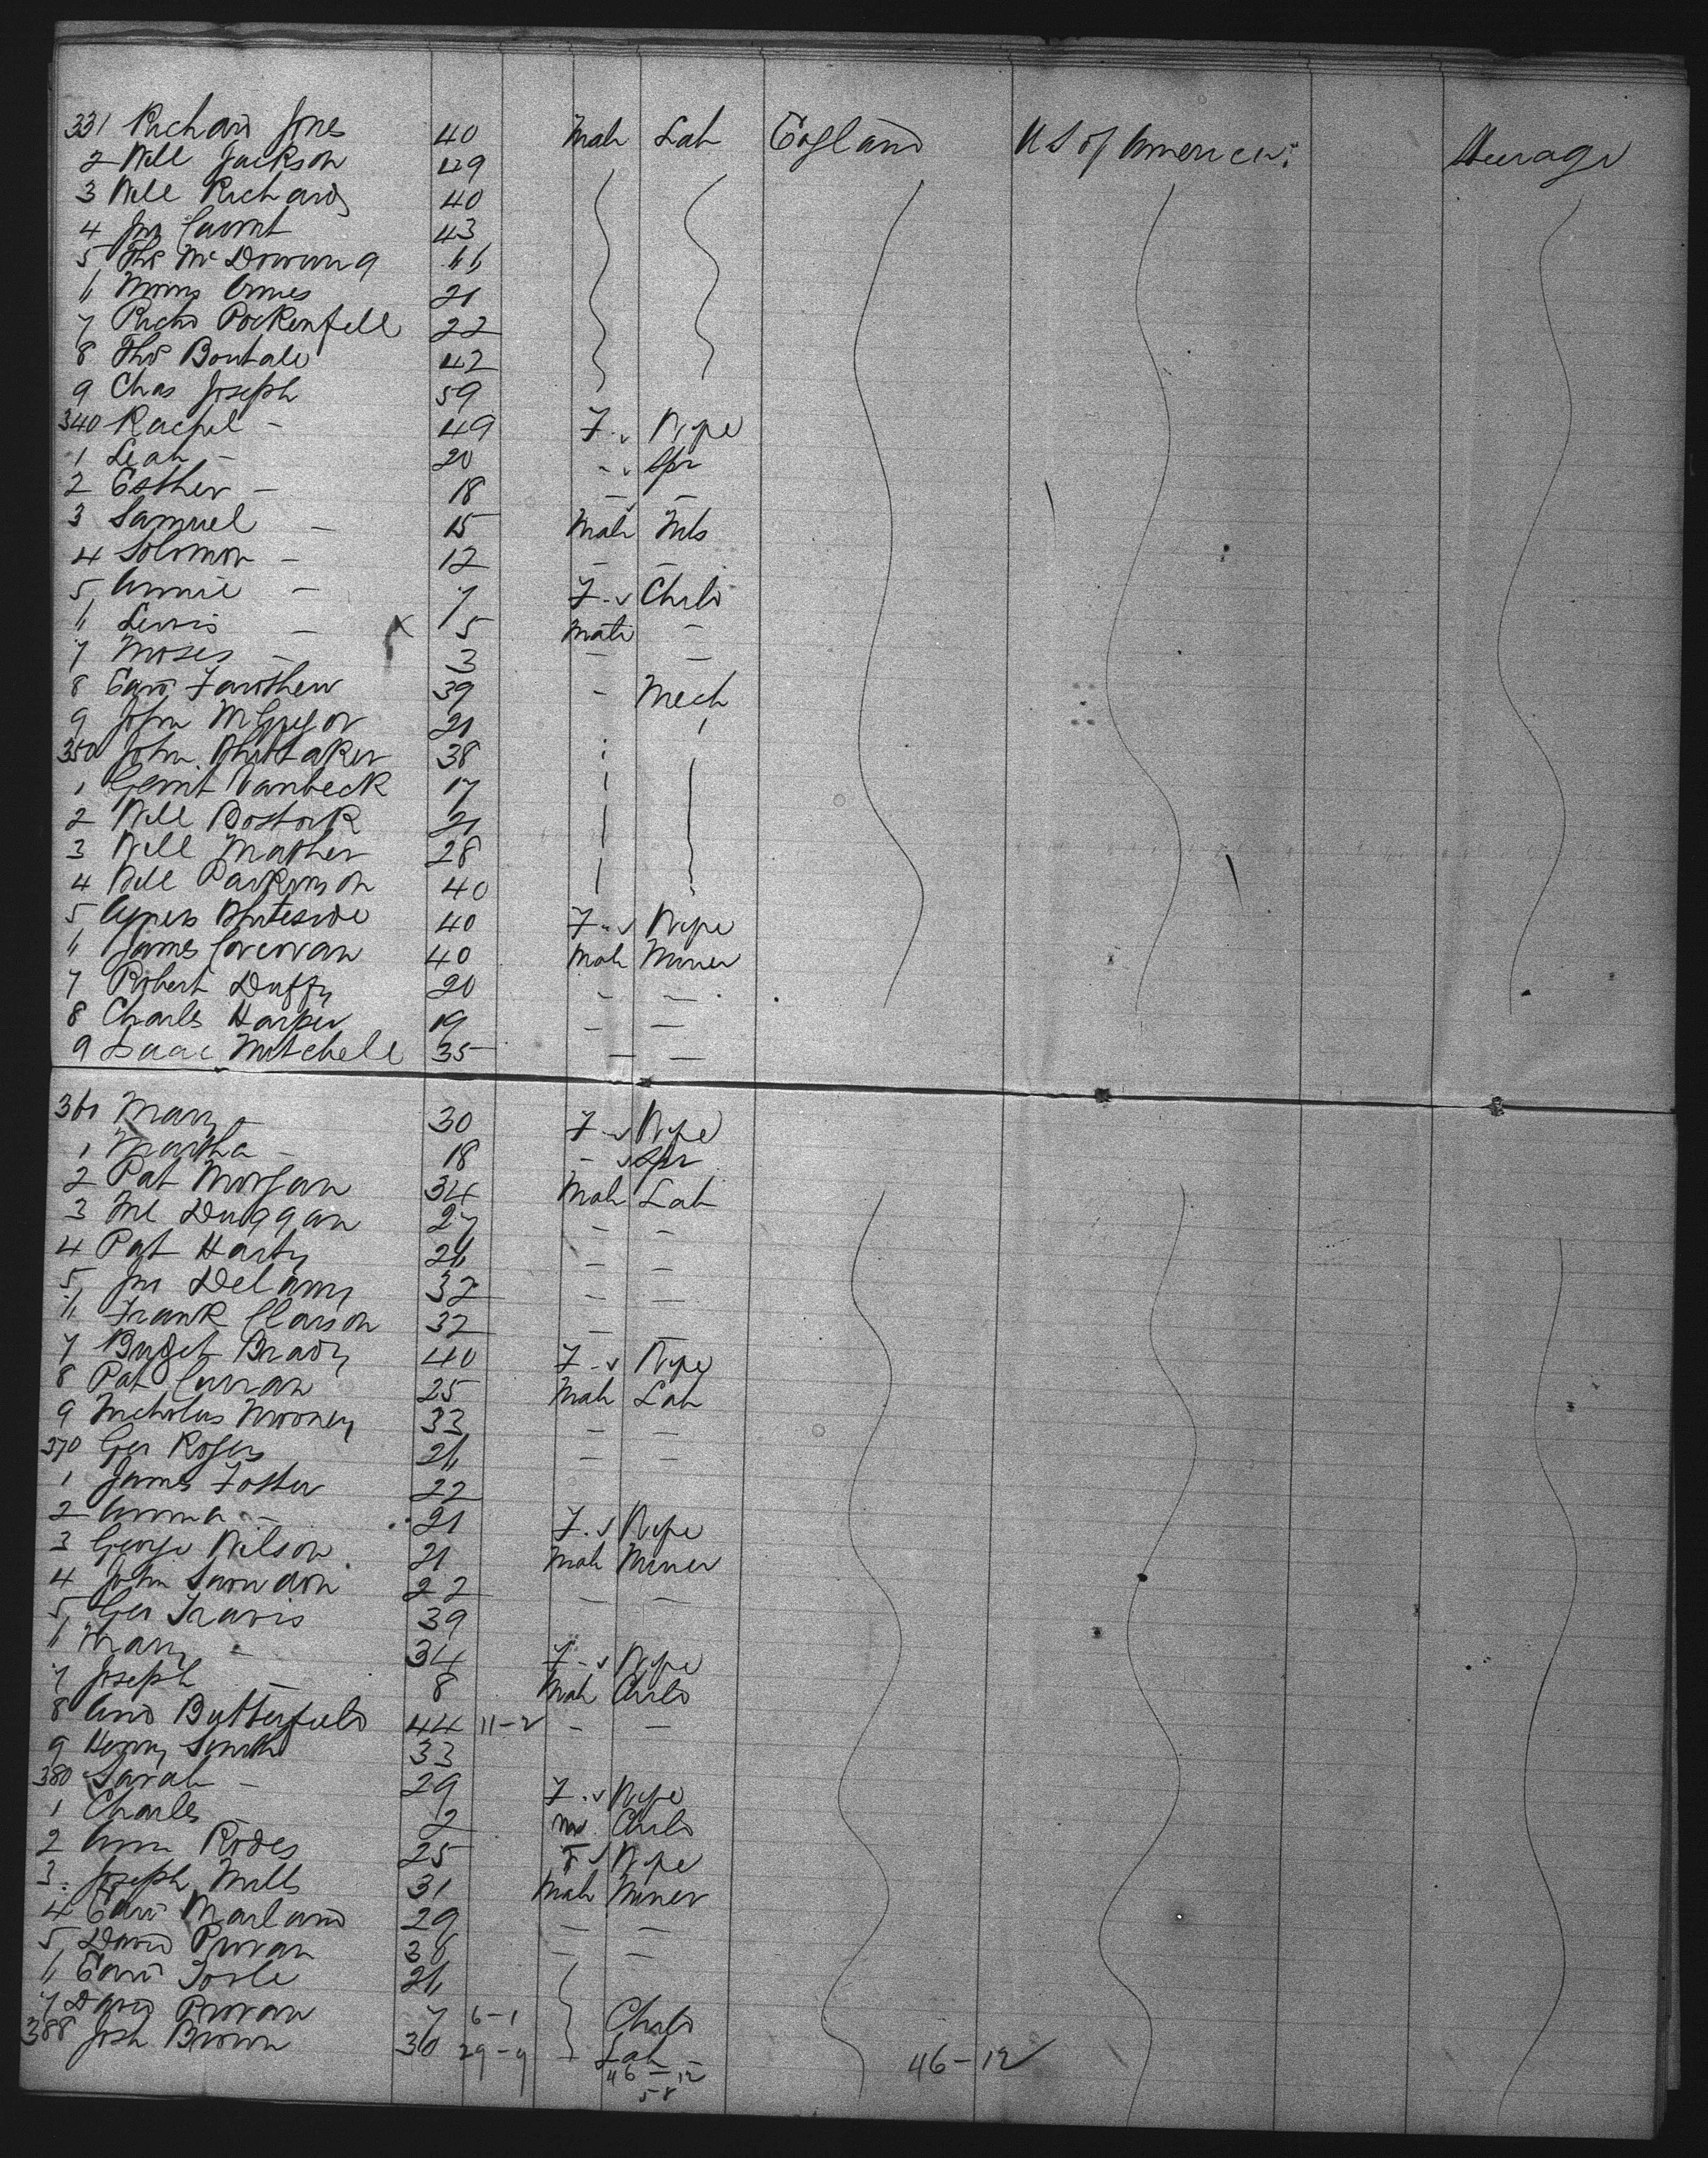 331 Richard Jones 40 Male Lab England US of America Steerage
2 Will Jackson 49
3 Will Richards 40
4 Jno 43
5 Thos Mc
6 Morris 21
7 Richd 22
8 Thos 42
9 Chas Joseph 59
340 Rachel - 49 F Wife
1 Leah - 20 - Spr
2 Esther - 18 - -
3 Samuel - 15 Male Mls
4 Solomon - 12 - -
5 Annie - 7 F Child
6 Lewis - X 5 Male -
7 Moses - 3 - -
8 Edwd 39 - Mech
9 John McGregor 21
350 John Whittaker 38
1 Gerrit Vanbeck 17
2 Will Bostock 21
3 Will Mather 28
4 Will Parkinson 40
5 Agnes Whiteside 40 F Wife
6 James Corcoran 40 Male Miner
7 Robert Duffy 20 - -
8 Charles Harper 19 - -
9 Isaac Mitchell 35 - -
360 Mary - 30 F Wife
1 Martha - 18 - Spr
2 Pat Morgan 34 Male Lab
3 Ml Duggan 27 - -
4 Pat Harty 26 - -
5 Jno Delany 32 - -
6 Frank Clarson 32 - -
7 Bridget Brady 40 F Wife
8 Pat Curran 25 Male Lab
9 Nicholas Mooney 33 - -
370 Geo Rogers 26 - -
1 James Foster 22
2 Anna - 21 F Wife
3 George Wilson 21 Male Miner
4 John 22 - -
5 Geo Travis 39
6 Mary - 34 F Wife
7 Joseph - 8 Male Child
8 Butterfield 44 11-2 - -
9 Henry Smith 33
380 Sarah - 29 F Wife
1 Charles - 2 Child
2 Ann Rodes 25 F Wife
3 Joseph Mills 31 Male Miner
4 Edwd Marland 29 - -
5 David Provan 36 - -
6 Edwd 26
7 David Provan 7 6-1 Child
388 Josh Brown 30 29-9 Lab
46-12 46-12
58